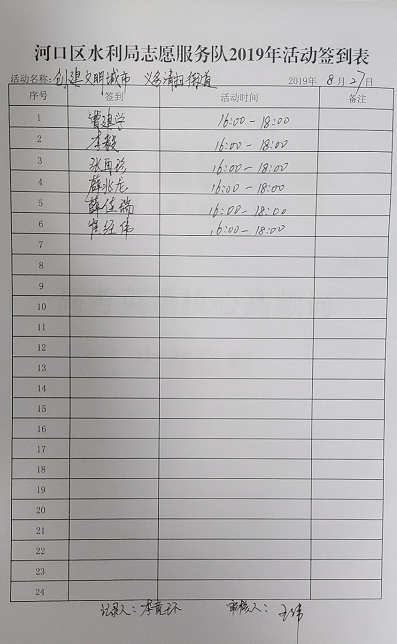 河口区水利局志愿服务队2019年活动签到表
活动名称：创建文明城市 义务清扫街道 2019年 8月27日
序号 签到 活动时间 备注
1 曹建学 16:00-18:00
2 李毅 16:00-18:00
3 16:00-18:00
4 薛兆龙 16:00-18:00
5 薛佳瑞 16:00-18:00
6 崔经伟 16:00-18:00
7
8
9
10
11
12
13
14
15
16
17
18
19
20
21
22
23
24
记录人： 审核人：王伟